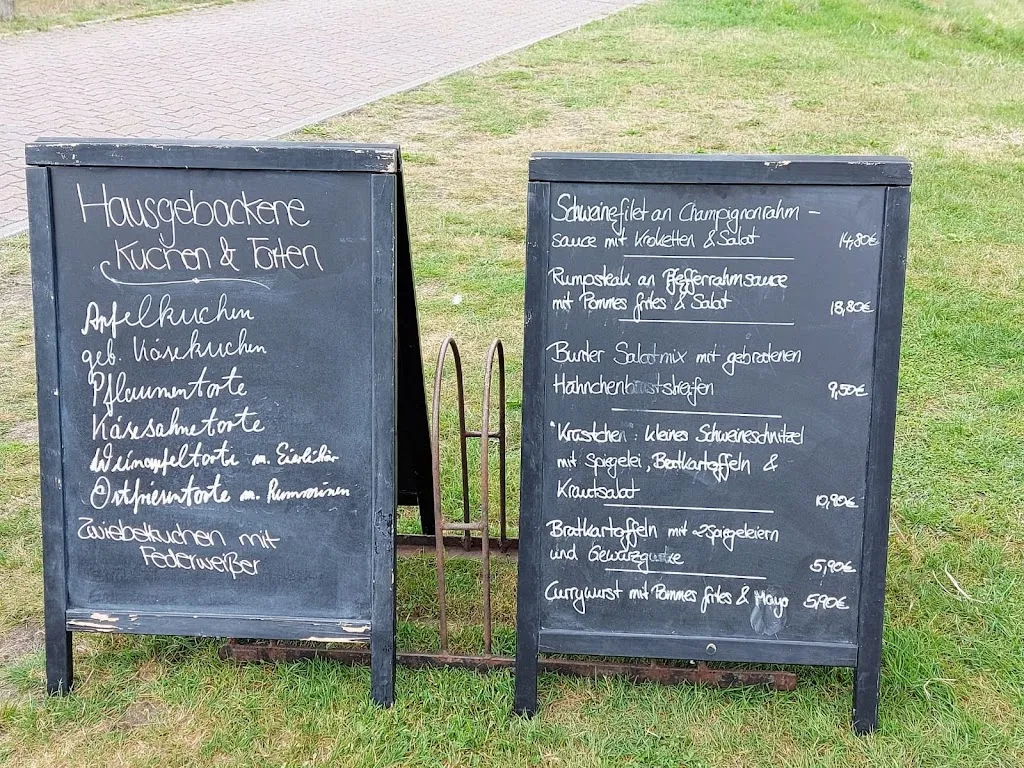 Hausgebackene
Kuchen & Torten
Apfelkuchen
geb. Käsekuchen
Pflaumentorte
Käsesahnetorte
Weinapfeltorte m. Eierlikör
Ostfriesentorte m. Rumrosinen
Zwiebelkuchen mit
Federweißer
Schweinefilet an Champignonrahm-
sauce mit Kroketten & Salat 14,80€
Rumpsteak an Pfefferrahmsauce
mit Pommes frites & Salat 18,80€
Bunter Salatmix mit gebratenen
Hähnchenbruststreifen 9,50€
Krüstchen: kleines Schweineschnitzel
mit Spiegelei, Bratkartoffeln &
Krautsalat 10,90€
Bratkartoffeln mit 2 Spiegeleiern
und Gewürzgurke 5,90€
Currywurst mit Pommes frites & Mayo 5,90€